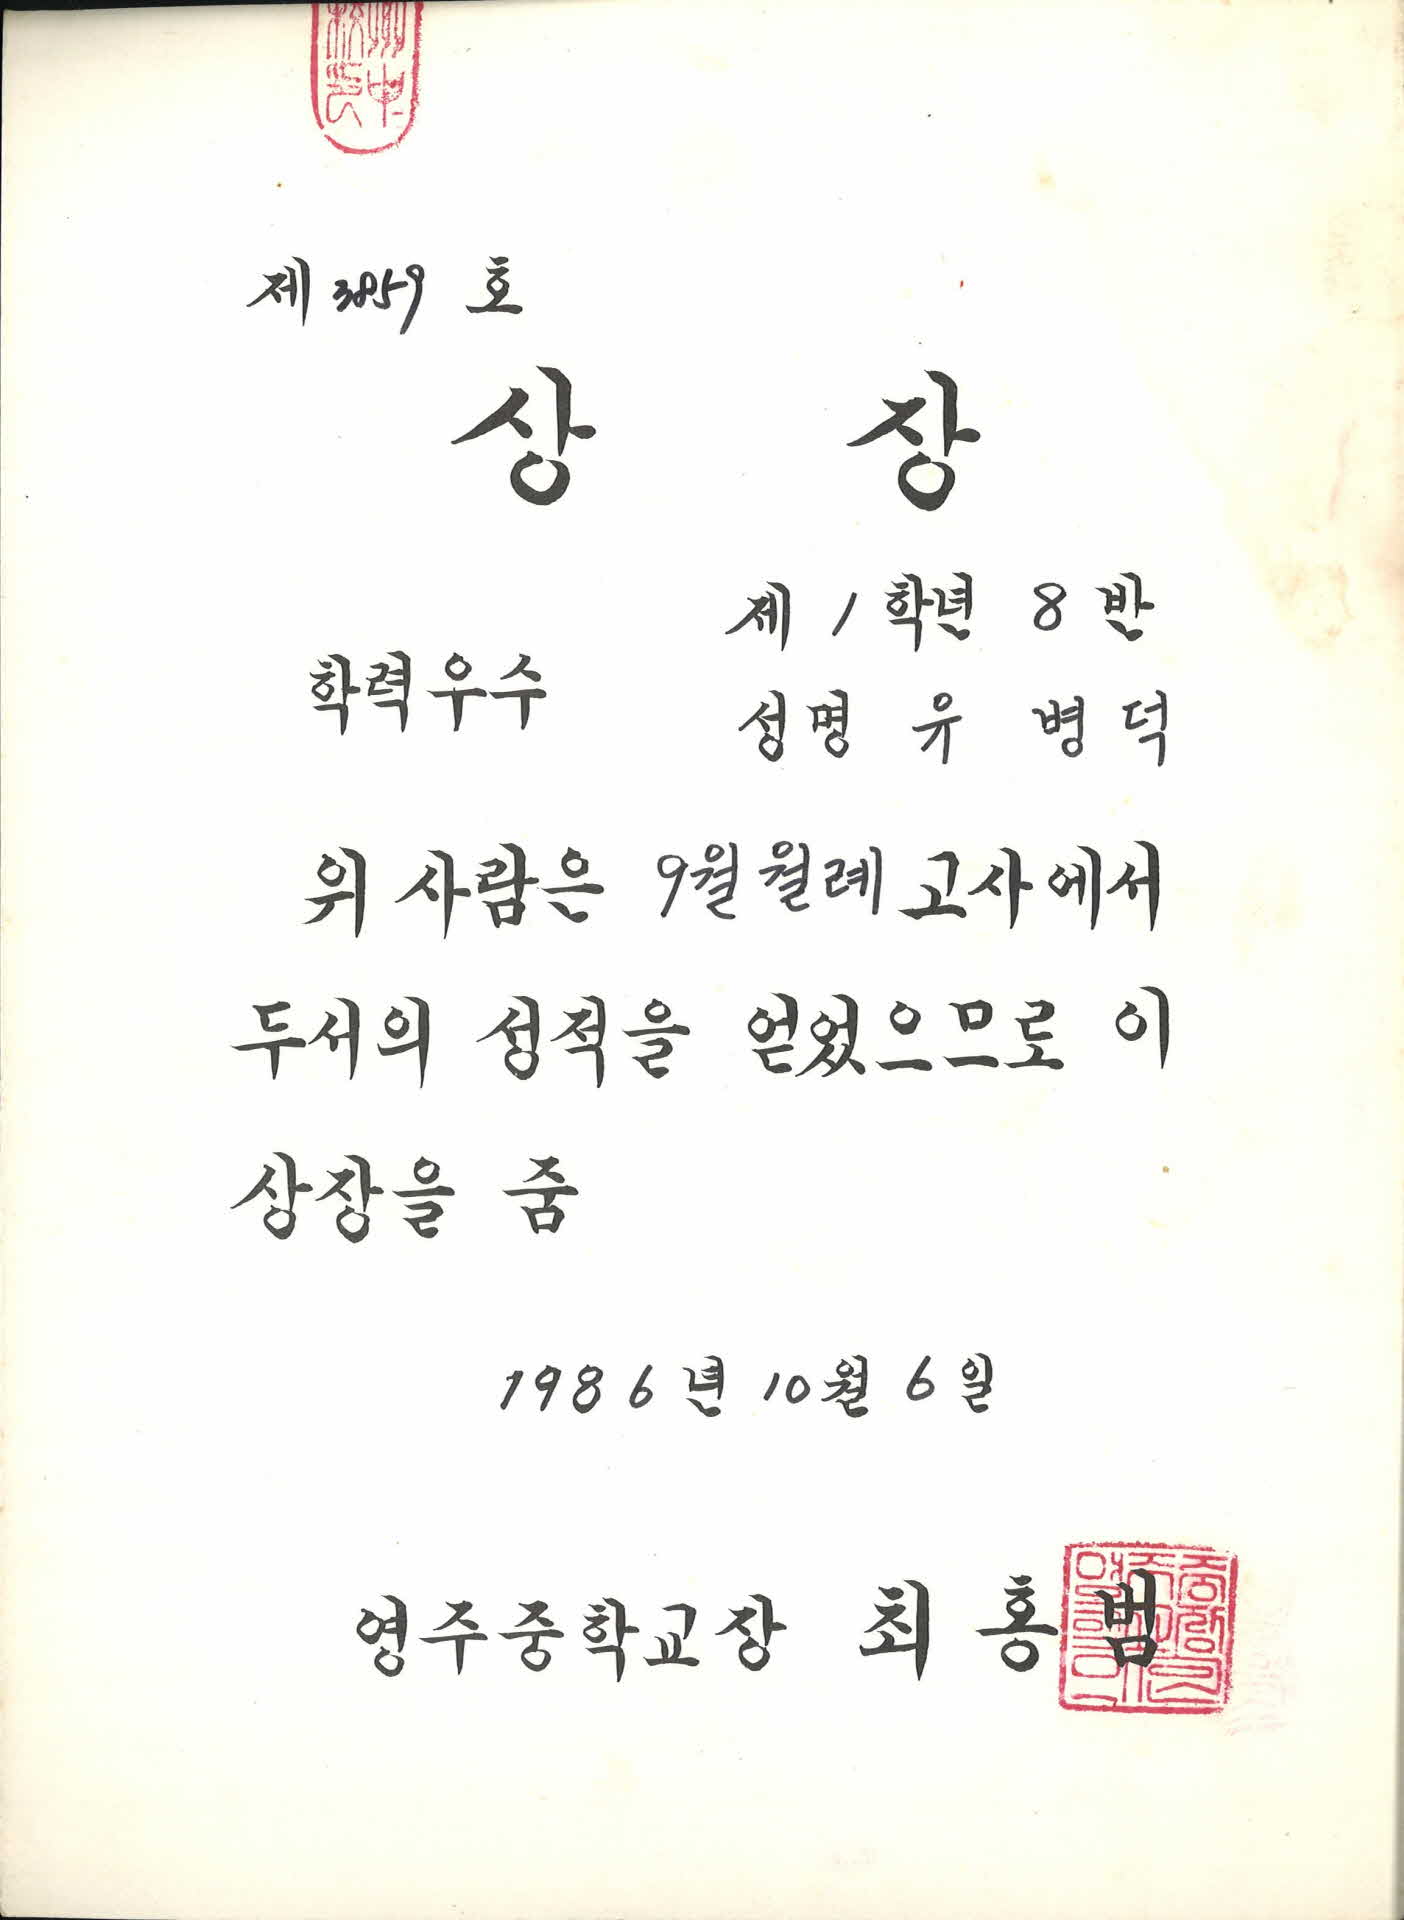 제 3859 호
상 장
학력우수
제 1 학년 8 반
성명 유 병 덕
위 사람은 9월 월례 고사에서
두서의 성적을 얻었으므로 이
상장을 줌
1986년 10월 6일
영주중학교장 최홍범